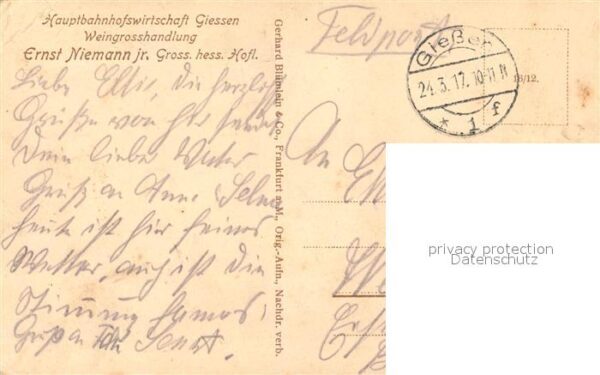 Hauptbahnhofswirtschaft Giessen
Weingrosshandlung
Ernst Niemann jr. Gross. hess. Hofl.
Liebe Elli, die herzlichsten
Grüße von hier sendet
Dein lieber Vater
Gruß an Anna Selma
heute ist hier feines
Wetter, auch ist die
Stimmung famos.
Gruß an
Gerhard Blümlein & Co., Frankfurt a. M., Orig.-Aufn., Nachdr. verb.
Feldpost
Gießen
24.3.17. 10-11 N
* 1 f
13/12.
An
privacy protection
Datenschutz